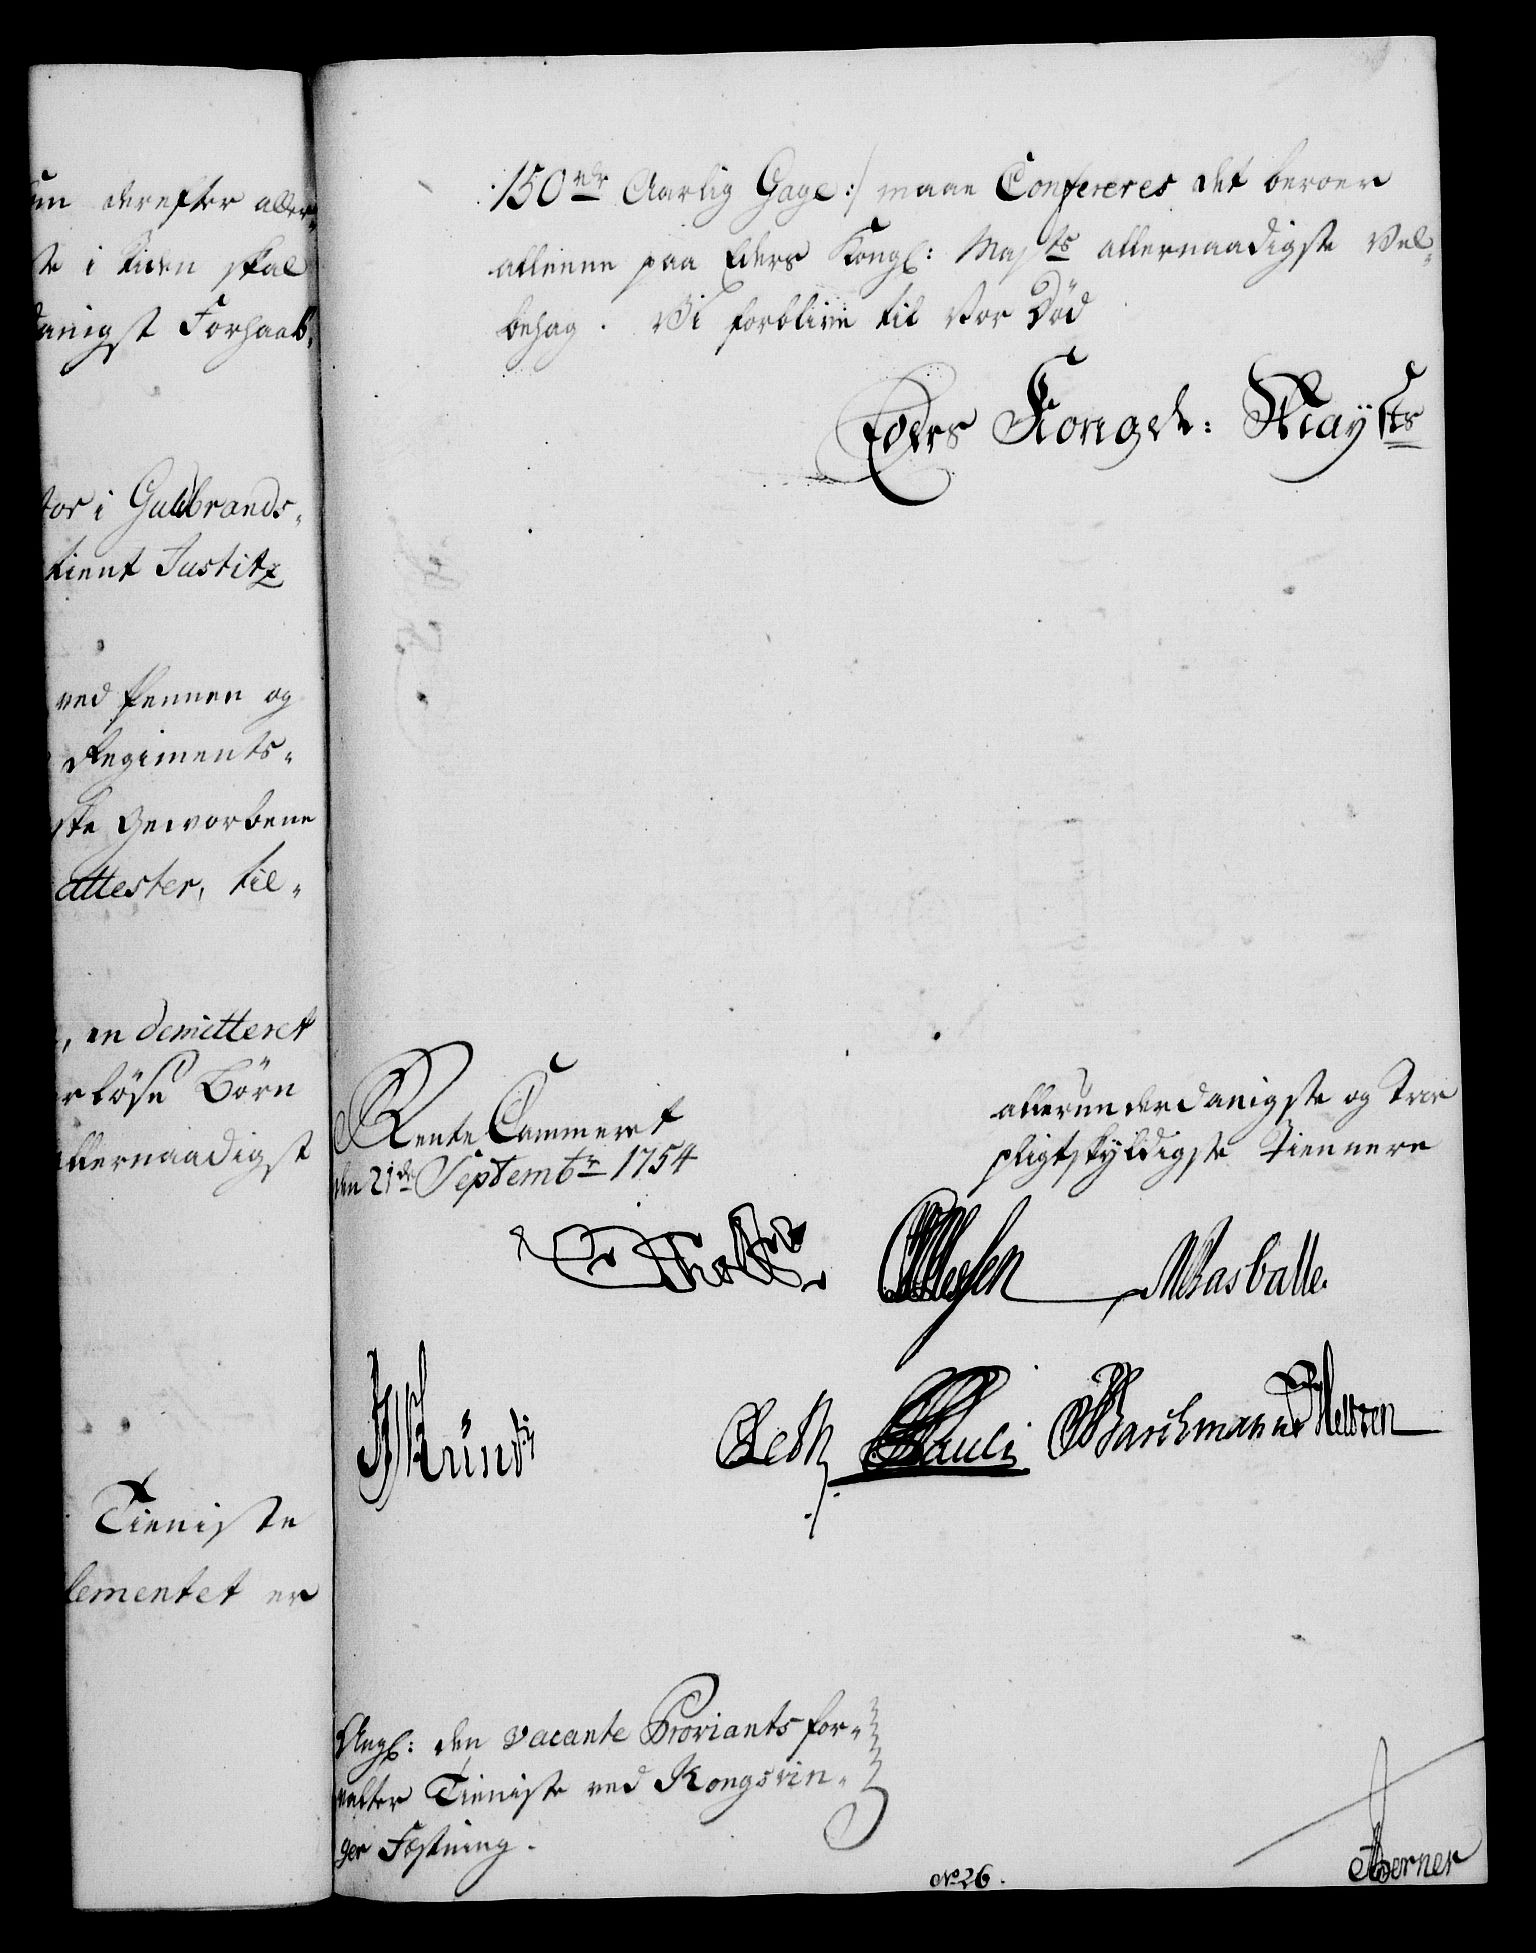 um derefter aller-
te i tiden skal
danigst Forhaab,
tor i Guldbrands-
tient Justitz
ved Pennen og
Regiments-
ste Geworbene
attester, til-
, en demitteret
rløse Børn
allernaadigst
Tieniste
lementet er
150 rdr Aarlig Gage :/ maae Confereres det beroer
alleene paa Eders Kongl: Majts allernaadigste Vel-
behag. Vi forblive til vor Död
Eders Kongel: Mayts
Rente Cammeret
den 21de Septembr 1754
allerunderdanigste og Troe
pligtskyldigste Tiennere
Holst
MRasballe.
Pauli Barchmann Meltzen
Angl: den vacante Proviantsfor-
valter Tieniste ved Kongsvin-
ger Fæstning.
No 26.
Berner